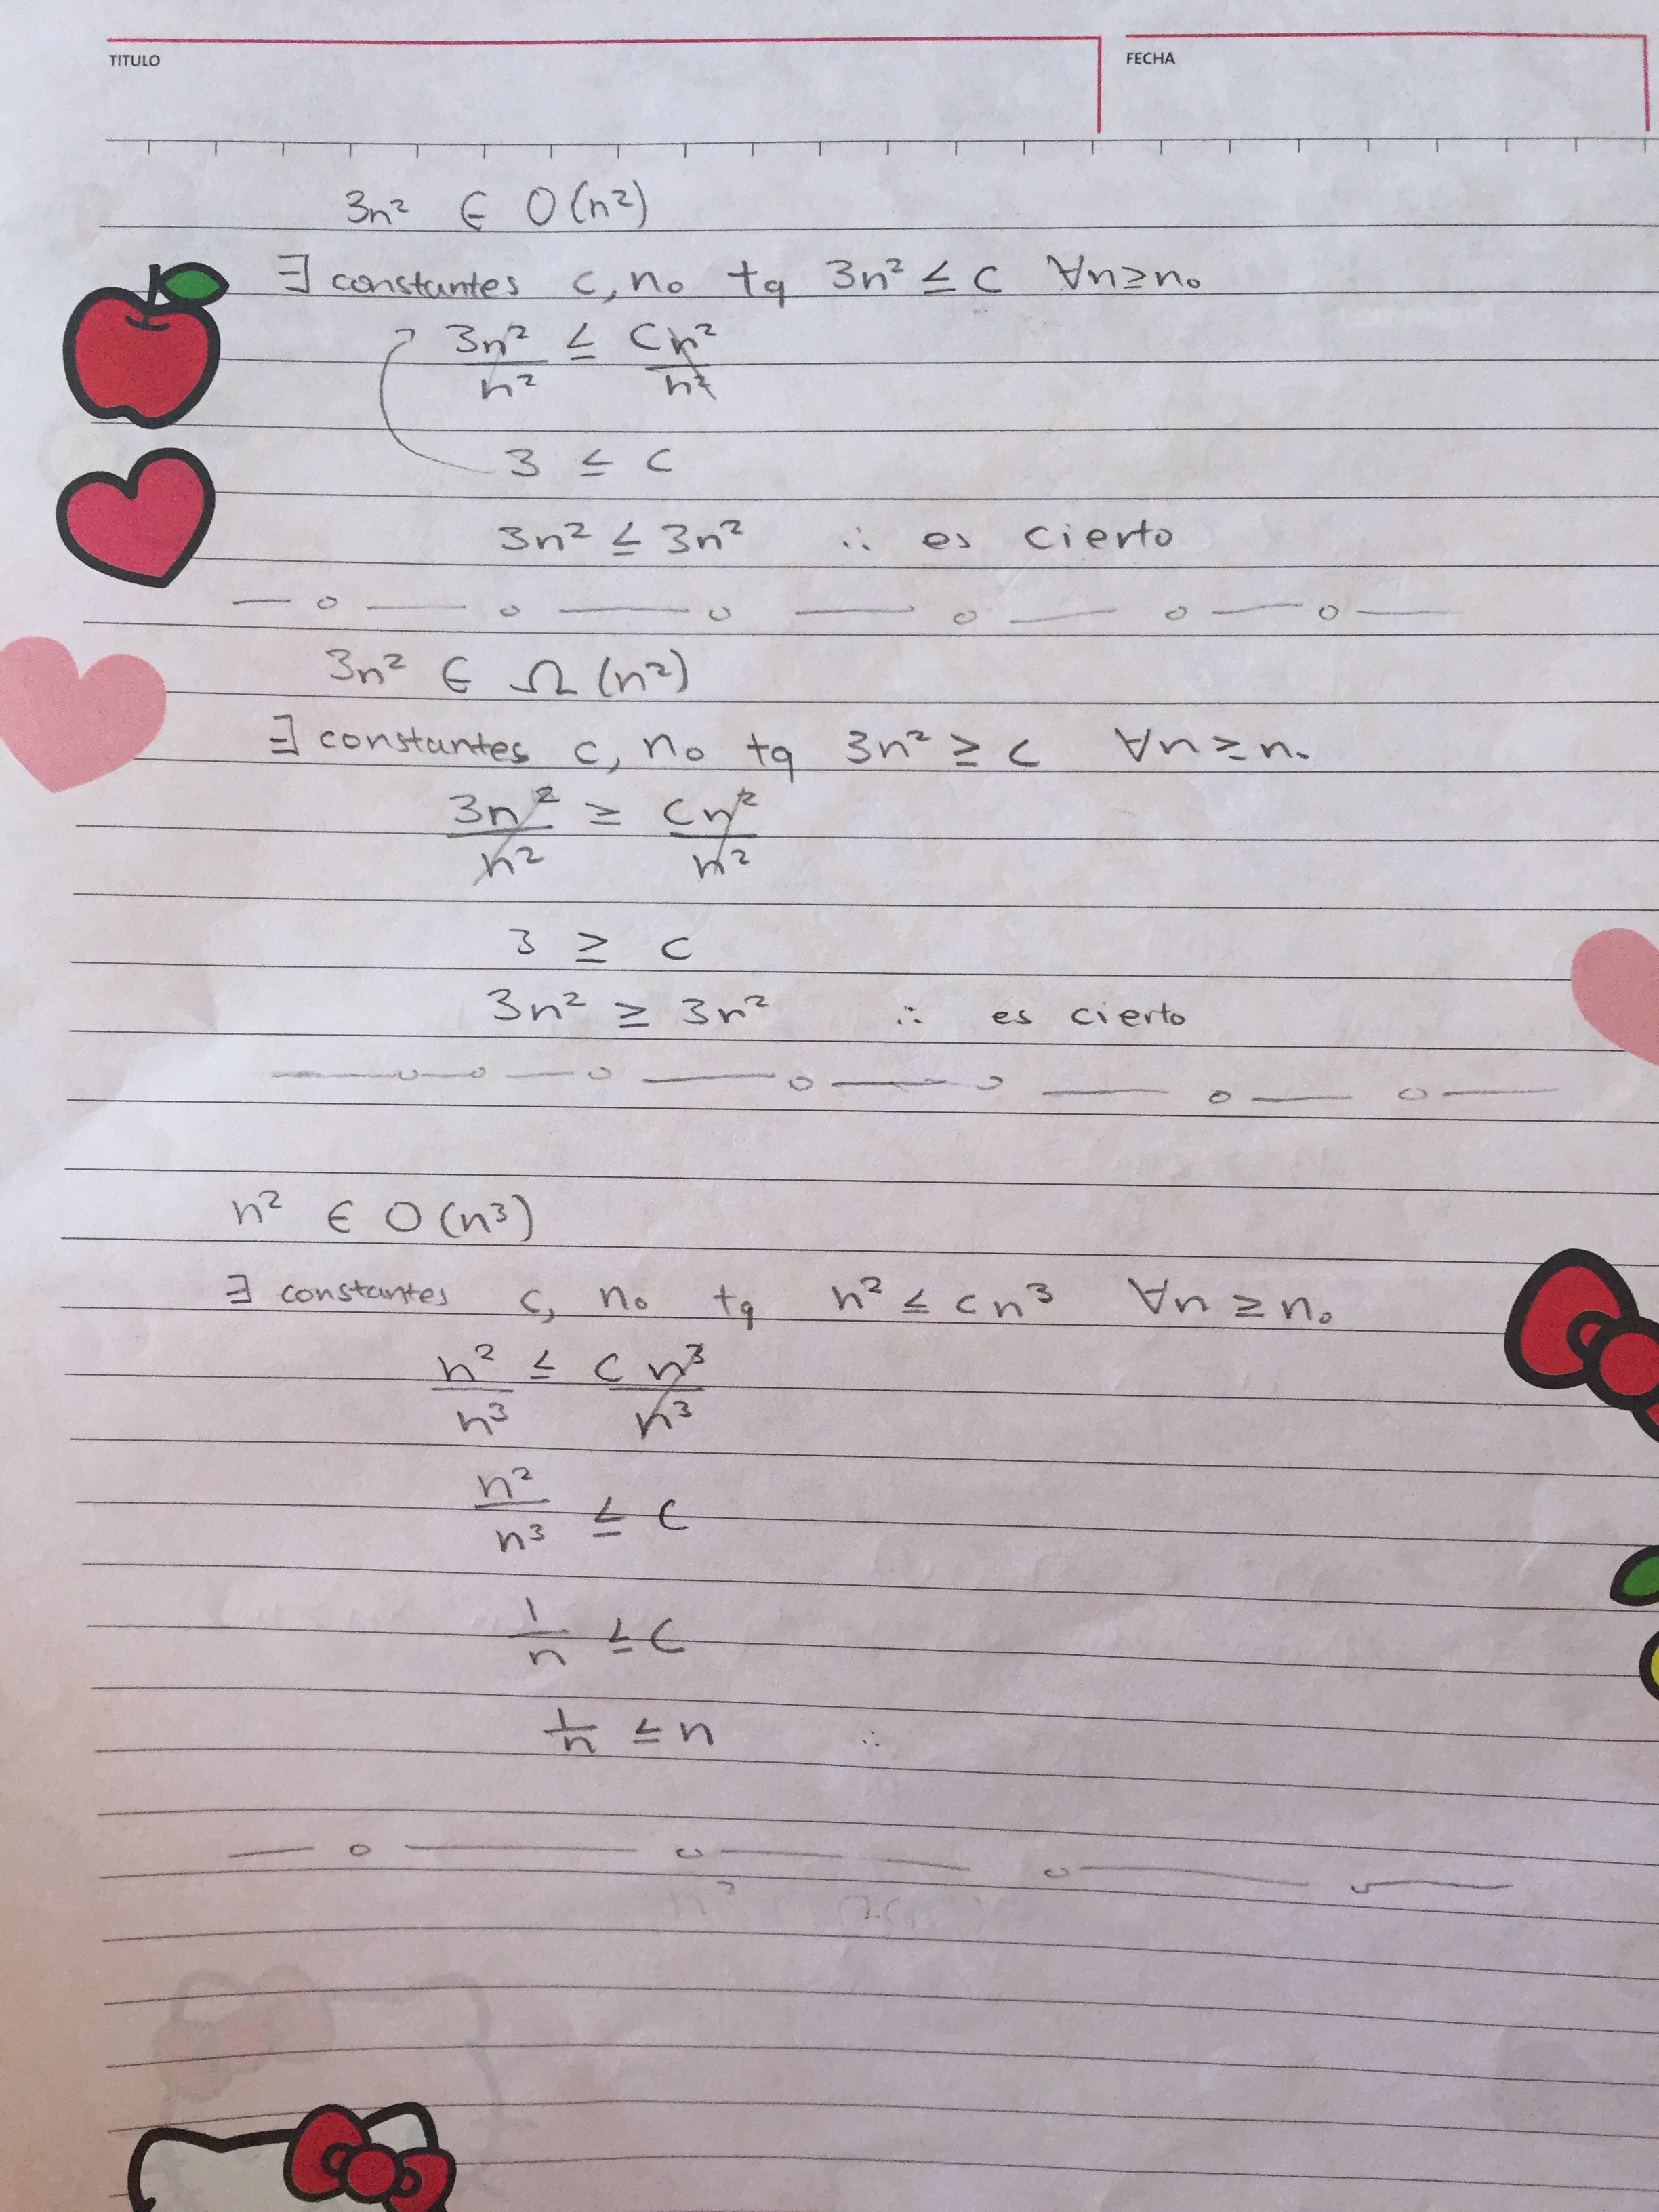 TITULO FECHA
3n² ∈ O(n²)
∃ constantes c, n₀ tq 3n² ≤ c ∀n≥n₀
3n²/n² ≤ cn²/n²
3 ≤ c
3n² ≤ 3n² ∴ es cierto
3n² ∈ Ω(n²)
∃ constantes c, n₀ tq 3n² ≥ c ∀n≥n₀
3n²/n² ≥ cn²/n²
3 ≥ c
3n² ≥ 3n² ∴ es cierto
n² ∈ O(n³)
∃ constantes c, n₀ tq n² ≤ cn³ ∀n ≥ n₀
n²/n³ ≤ c n³/n³
n²/n³ ≤ c
1/n ≤ c
1/n ≤ n ∴